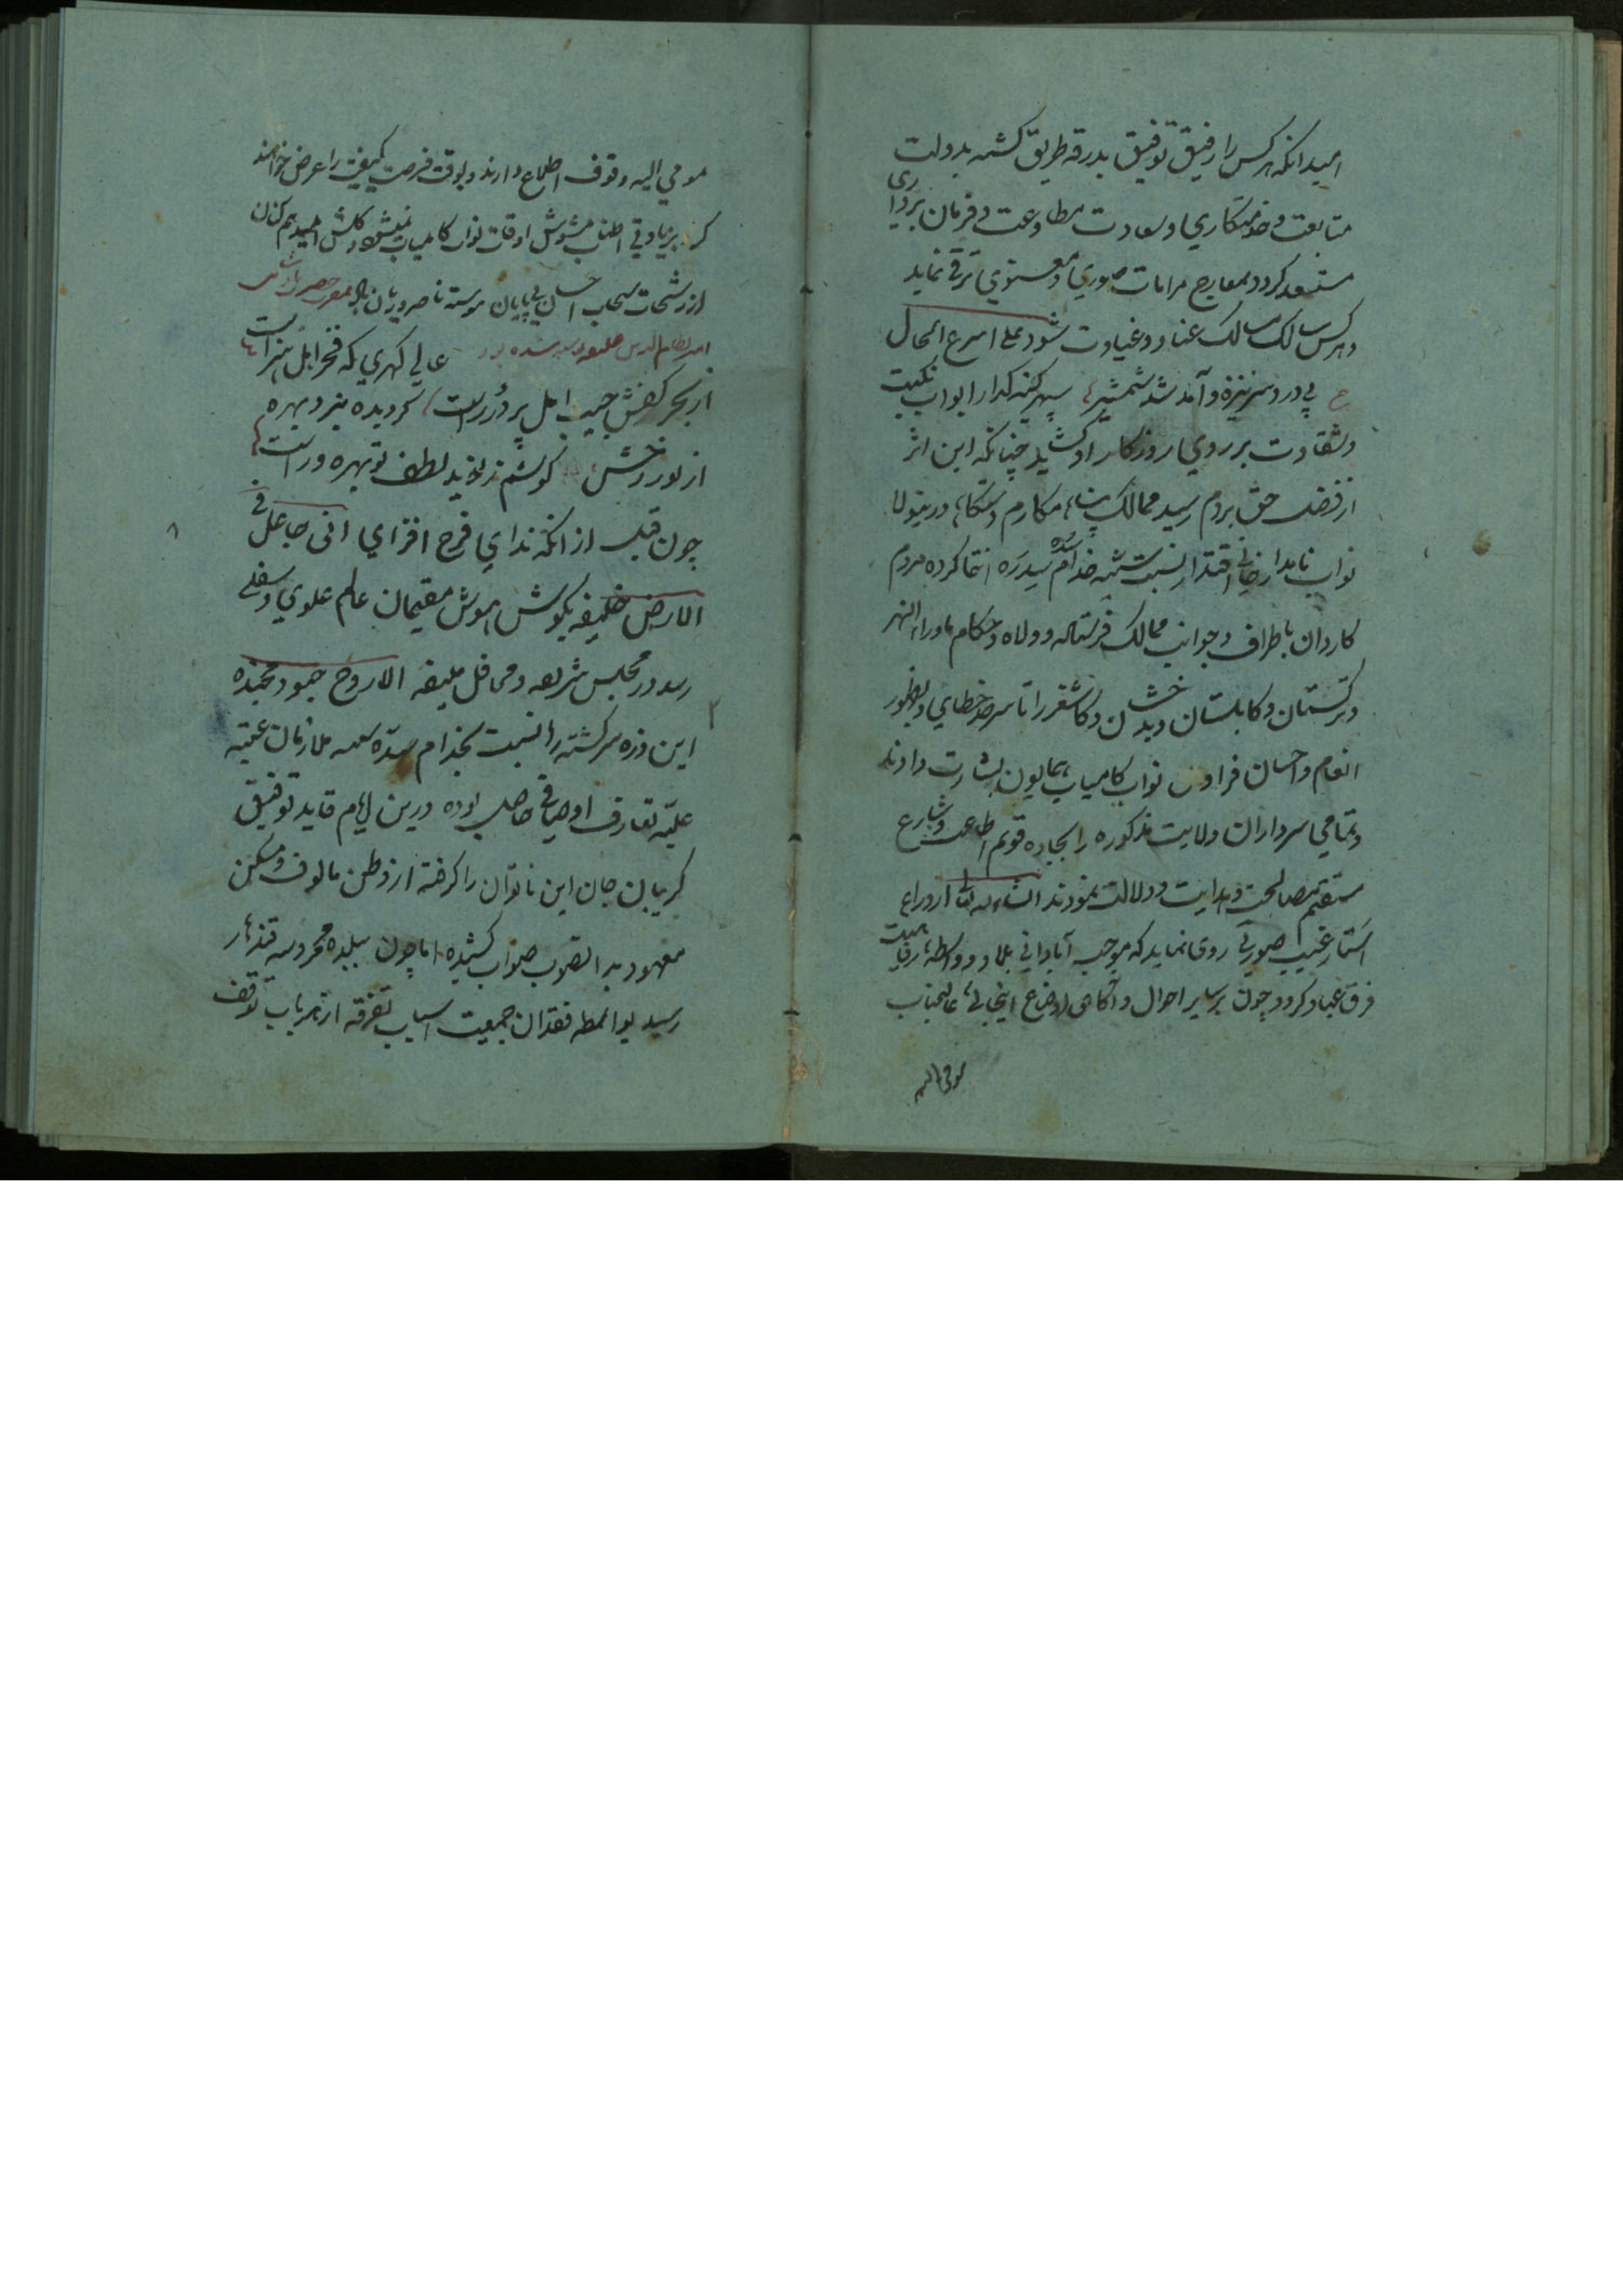 امید انکه هرکس را رفیق توفیق بدرقه طریق کشته بدولت
متابعت و خدمتکاری و سعادت مطاوعت و فرمان برداری
مستسعد کردد بمعارج مرامات صوری و معنوی ترقی نماید
و هرکس سالک مسالک عناد و غباوت شود علی اسرع الحال
ع بی درد سر نیزه و آمد شد شمشیر سپهر کینه کذار ابواب نکبت
و شقاوت بر روی روزکار او کشاید چنانکه این اثر
از فضل حق بردم رسید ممالک پناه مکارم دستکاه درینولا
نواب نامدار خانی اقتدار نسبت خدام سدره انتما کرده مردم
کاردان باطراف و جوانب ممالک فرستاده و ولاه و حکام ماوراء النهر
و ترکستان و کابلستان و بدخشان و کاشغر را تا سرحد خطای بظهور
انعام و احسان فراوان نواب کامیاب همایون بشارت دادند
و تمامی سرداران ولایت مذکوره را بجاده قویم اطاعت و شارع
مستقیم مصالحت و هدایت و دلالت نمودند انشاء الله تعالی از وراء
استار غیب صورتی روی نماید که موجب آبادانی بلاد و واسطه رفاهیت
فرق عباد کردد چون بر سایر احوال و آکاهی اوضاع اینجائی عالیجناب
مومی الیه
مومی الیه وقوف اطلاع دارند و بوقت فرصت کیفیت را عرض خواهند
کرد بزیادتی اطناب مشوش اوقات نواب کامیاب نمیشود کلشن امید هم کنان
از رشحات سحاب احسان بی پایان پیوسته ناضر و ریان باد
عالی کهری که فخر اهل هنر است
از بحر کفش جیب امل پر درر است کردیده بیزد بهره
از نور رخش کوشم ز نوید لطف تو بهره ور است
چون قبل از انکه ندای فرح افزای انی جاعل فی
الارض خلیفه بکوش هوش مقیمان عالم علوی و سفلی
رسد در مجلس شریعه و محافل منیفه الارواح جنود مجنده
این ذره سرکشته را نسبت بخدام سده ملازمان عتبه
علیه تعارف اوصافی حاصل بوده درین ایام قاید توفیق
کریبان جان این ناتوان را کرفته از وطن مالوف و مسکن
معهود بدانصوب صواب کشیده اما چون ببلده محروسه قندهار
رسید بواسطه فقدان جمعیت اسباب تفرقه از هر باب توقف